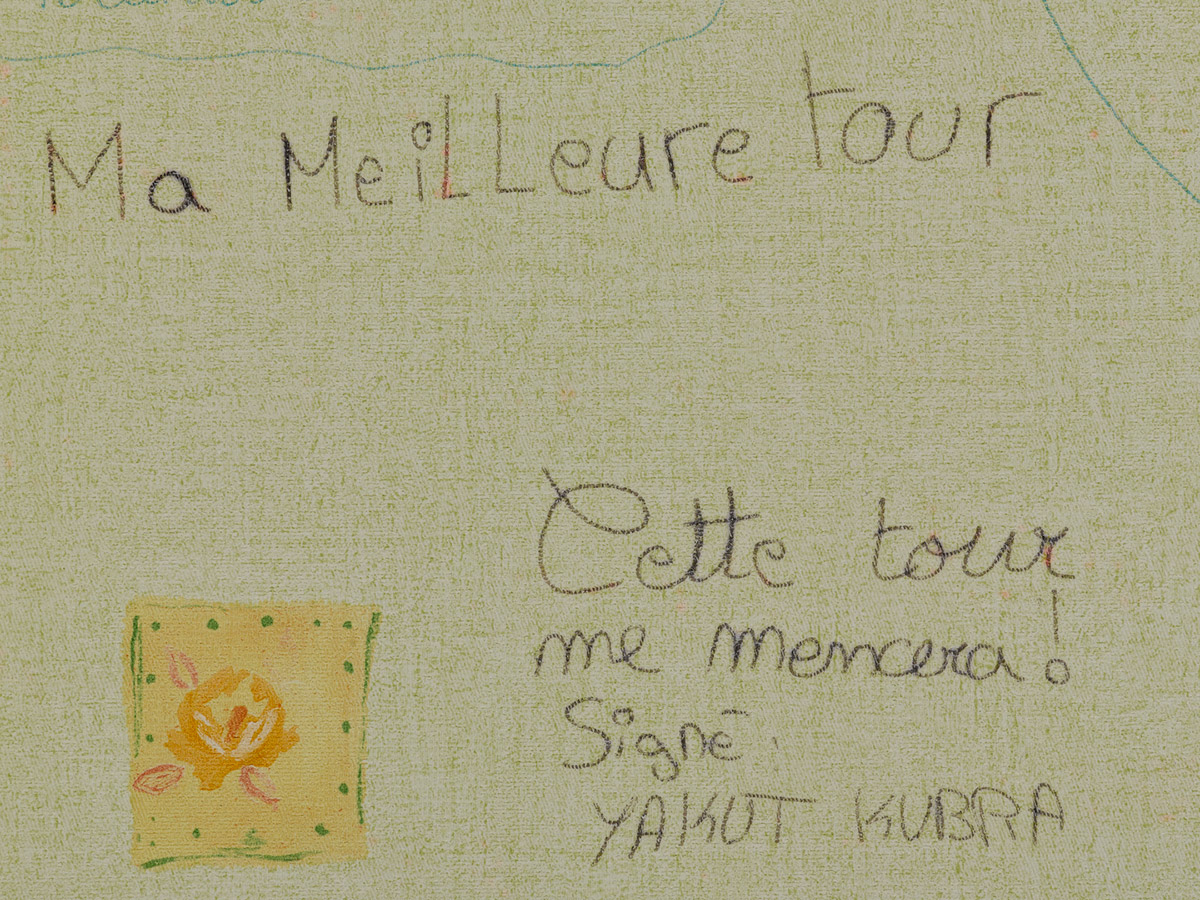 Ma MeiLLeure tour
Cette tour
me mencera!
Signé
YAKUT KUBRA